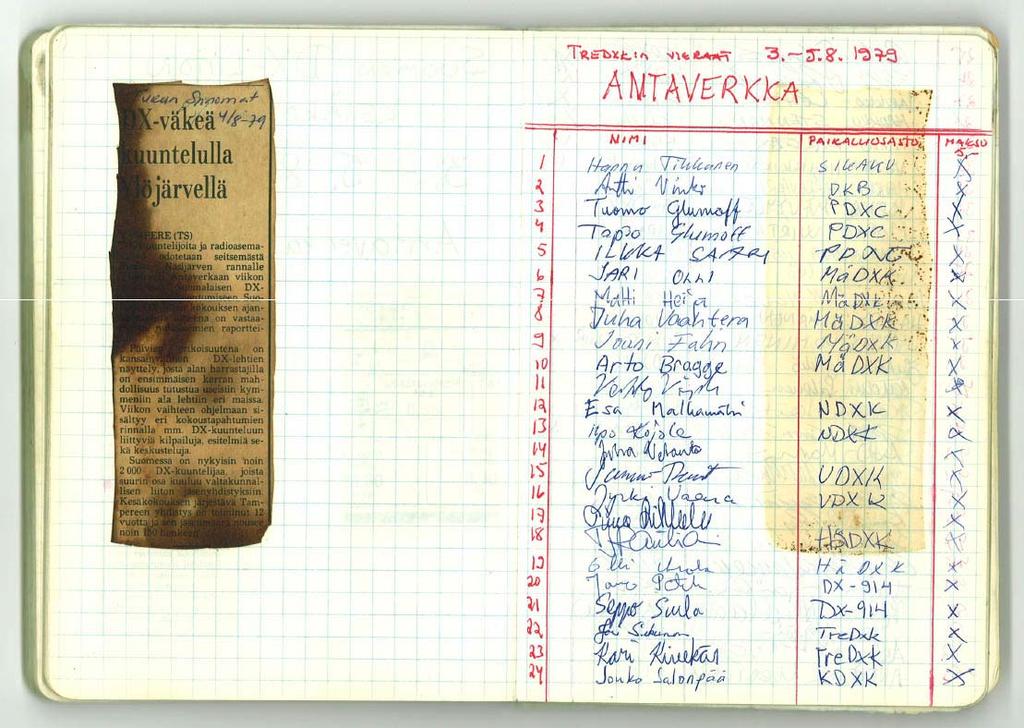 4/8-79
DX-väkeä
kuuntelulla
Ylöjärvellä
TAMPERE (TS)
kuuntelijoita ja radioasema-
odotetaan seitsemästä
Näsijärven rannalle
Antaverkaan viikon
Suomalaisen DX-
kokouksen ajan-
on vastaa-
raporttei-
erikoisuutena on
kansainvälinen DX-lehtien
näyttely, josta alan harrastajilla
on ensimmäisen kerran mah-
dollisuus tutustua useisiin kym-
meniin ala lehtiin eri maissa.
Viikon vaihteen ohjelmaan si-
sältyy eri kokoustapahtumien
rinnalla mm. DX-kuunteluun
liittyviä kilpailuja, esitelmiä se-
kä keskusteluja.
Suomessa on nykyisin noin
2 000 DX-kuuntelijaa, joista
suurin osa kuuluu valtakunnal-
lisen liiton jäsenyhdistyksiin.
Kesäkokouksen järjestävä Tam-
pereen yhdistys on toiminut 12
vuotta ja sen jäsenmäärä nousee
noin 150 henkeen
TREDXK:N VIERAAT 3.-5.8. 1979
ANTAVERKKA
NIMI PAIKALLISOSASTO MAKSU
1 Hannu Tikkanen X
2 Antti DKB X
3 Tuomo Glumoff PDXC X
4 Tapio Glumoff PDXC X
5 ILKKA X
6 JARI OLLI MäDXK X
7 Matti Heija MäDXK X
8 Juha Vaahtera MäDXK X
9 Jouni Fahn MäDXK X
10 Arto Bragge MäDXK X
11 X
12 Esa NDXK X
13 NDXK X
14 Juha X
15 UDXK X
16 Jyrki UDXK X
17 X
18 HSDXK X
19 Olli HäDXK X
20 DX-914 X
21 Seppo Suila DX-914 X
22 TreDxk X
23 Kari Kivekäs TreDxK X
24 Jouko Salonpää KDXK X